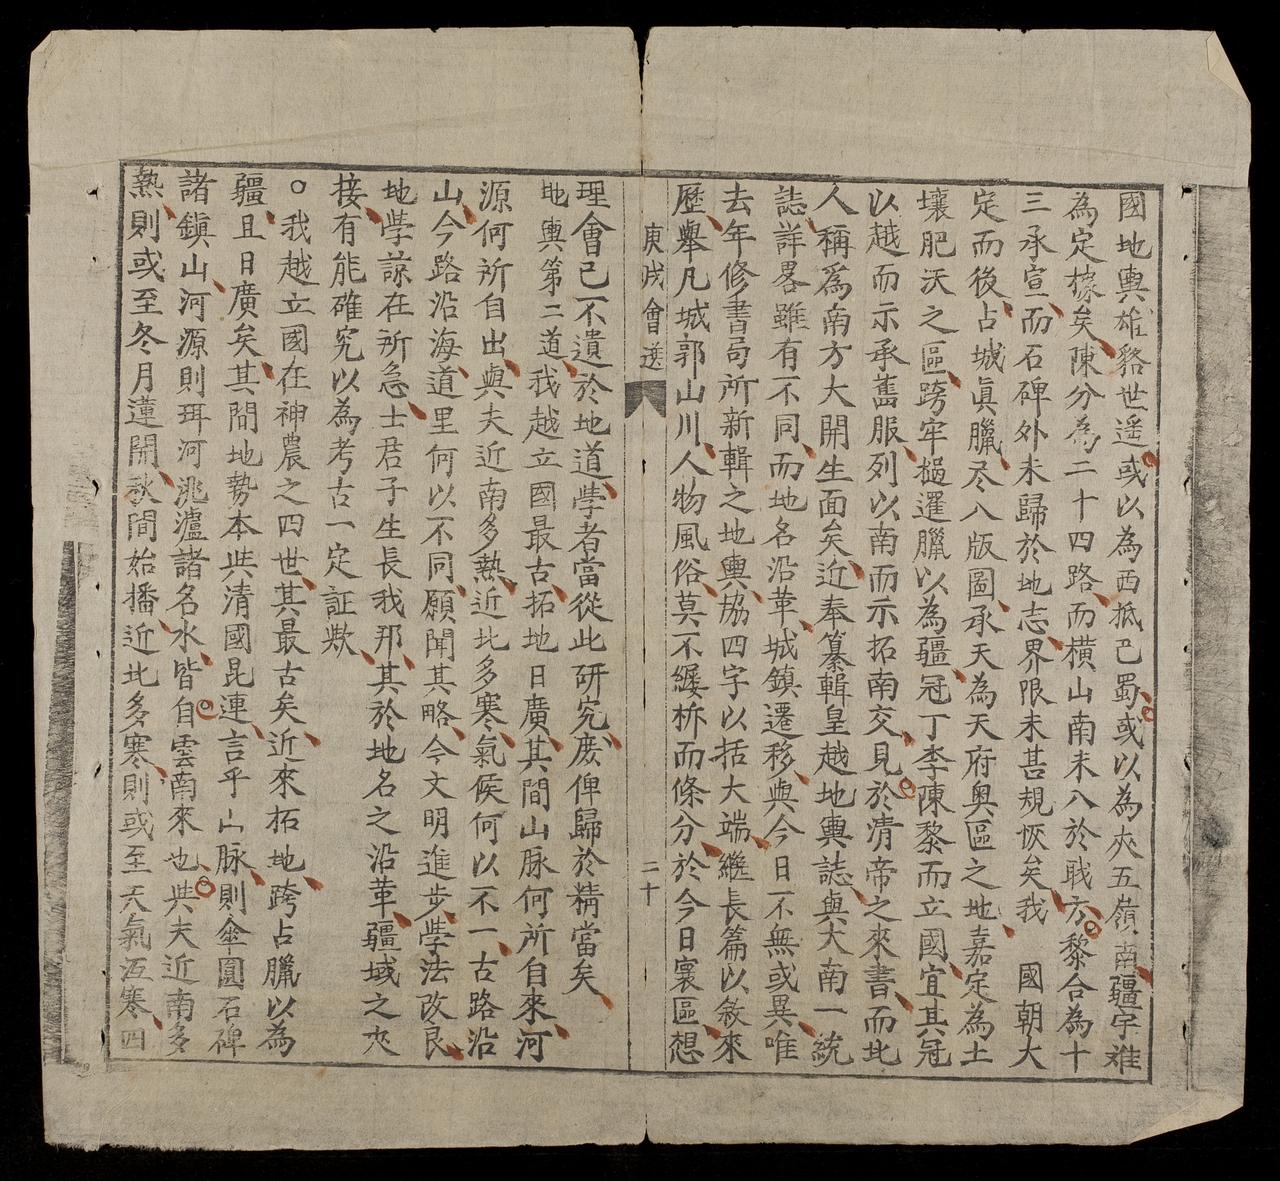 國地輿雄貉世遥或以為西抵巴蜀或以為夾五嶺南疆宇难
為定據矣陳分為二十四路而橫山南未入於職方黎合為十
三承宣而石碑外未歸於地志界限未甚規恢矣我 國朝大
定而後占城真臘尽入版圖承天為天府奥區之地嘉定為土
壤肥沃之區跨牢撾暹臘以為疆冠丁李陳黎而立國宜其冠
以越而示承舊服列以南而示拓南交見於清帝之來書而北
人稱為南方大開生面矣近奉纂輯皇越地輿誌與大南一統
誌詳畧雖有不同而地名沿革城鎮遷移與今日不無或異唯
去年修書局所新輯之地輿協四字以括大端繼長篇以敘來
歷舉凡城郭山川人物風俗莫不縷柝而條分於今日寰區想
庚戌會選
二十
理會已不遺於地道學者當從此研究庶俾歸於精當矣
地輿第二道我越立國最古拓地日廣其間山脉何所自來河
源何所自出與夫近南多熱近北多寒氣候何以不一古路沿
山今路沿海道里何以不同願聞其略今文明進步學法改良
地學諒在所急士君子生長我邦其於地名之沿革疆域之夾
接有能確究以為考古一定証歟
○我越立國在神農之四世其最古矣近來拓地跨占臘以為
疆且日廣矣其間地勢本與清國昆連言乎山脉則傘圓石碑
諸鎮山河源則珥河洮瀘諸名水皆自雲南來也與夫近南多
熱則或至冬月蓮開秋間始播近北多寒則或至天氣沍寒四